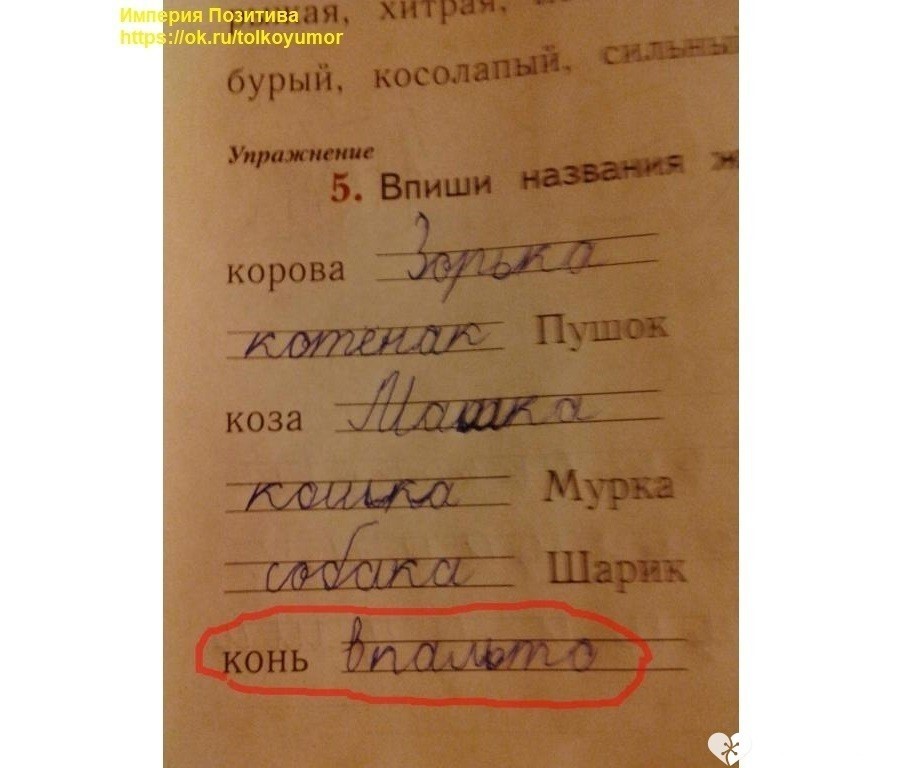 Империя Позитива
https://ok.ru/tolkoyumor
хитрая,
бурый, косолапый, сильный
Упражнение
5. Впиши названия
корова Зорька
котенак Пушок
коза Машка
кошка Мурка
собака Шарик
конь впальто